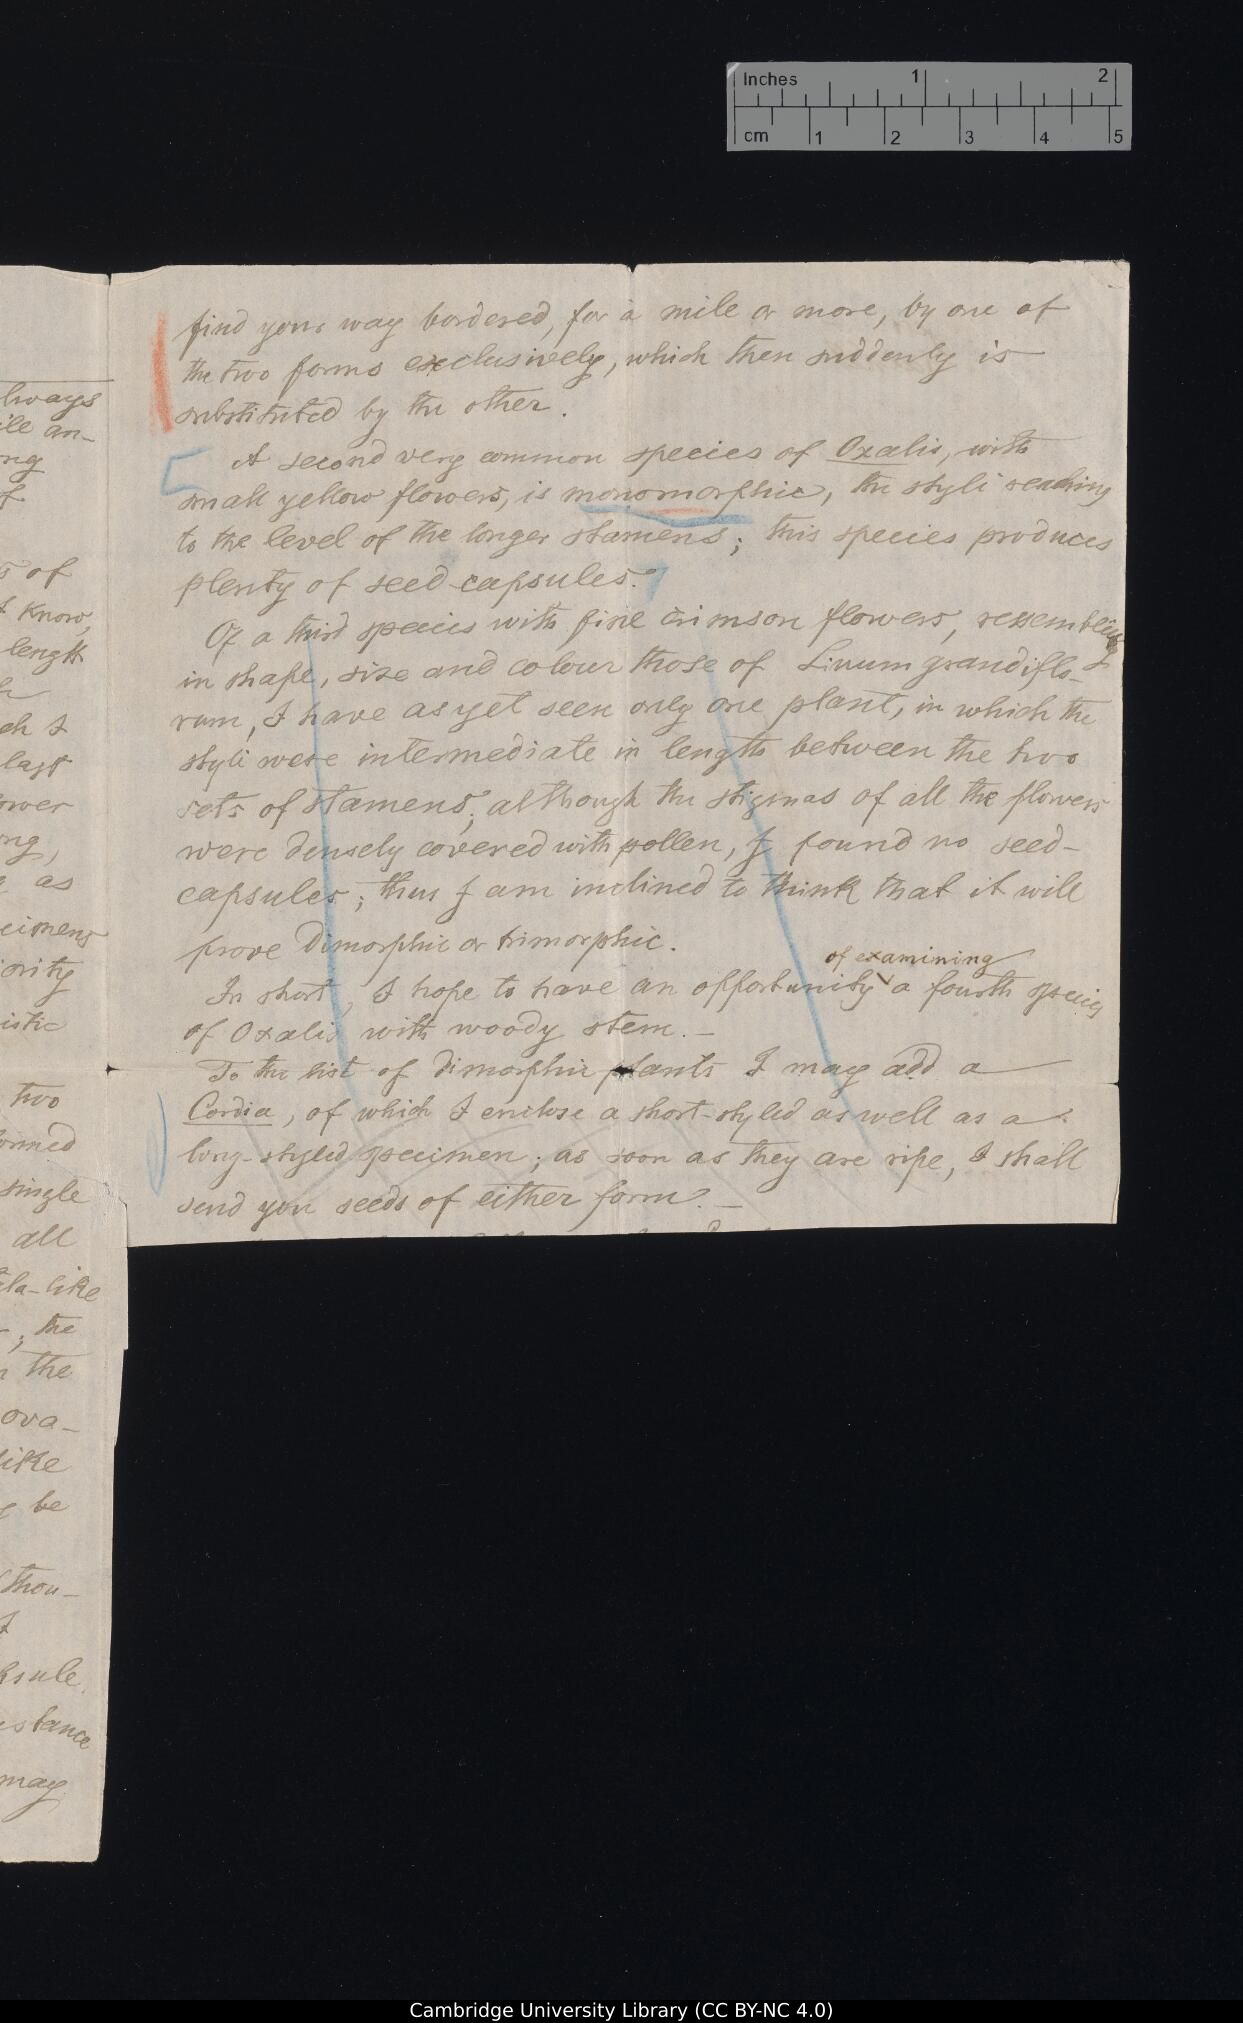 Inches 1 2
cm 1 2 3 4 5
find your way bordered, for a mile or more, by one of
the two forms exclusively, which then suddenly is
substituted by the other.
A second very common species of Oxalis, with
small yellow flowers, is monomorphic, the styli reaching
to the level of the longer stamens; this species produces
plenty of seed-capsules.
Of a third species with fine crimson flowers, resembling
in shape, size and colour those of Linum grandiflo-
rum, I have as yet seen only one plant, in which the
styli were intermediate in length between the two
sets of stamens; although the stigmas of all the flowers
were densely covered with pollen, I found no seed-
capsules; thus I am inclined to think that it will
prove dimorphic or trimorphic.
of examining
In short, I hope to have an opportunity a fourth species
of Oxalis with woody stem. –
To the list of dimorphic plants I may add a
Cordia, of which I enclose a short-styled as well as a
long-styled specimen; as soon as they are ripe, I shall
send you seeds of either form. –
lways
ile an-
ng
f
s of
I know,
length
ch I
last
ower
ng,
as
ecimens
jority
istic
two
ormed
single
all
la-like
; the
n the
ova-
like
be
thou-
I
ksule.
istance
may
Cambridge University Library (CC BY-NC 4.0)